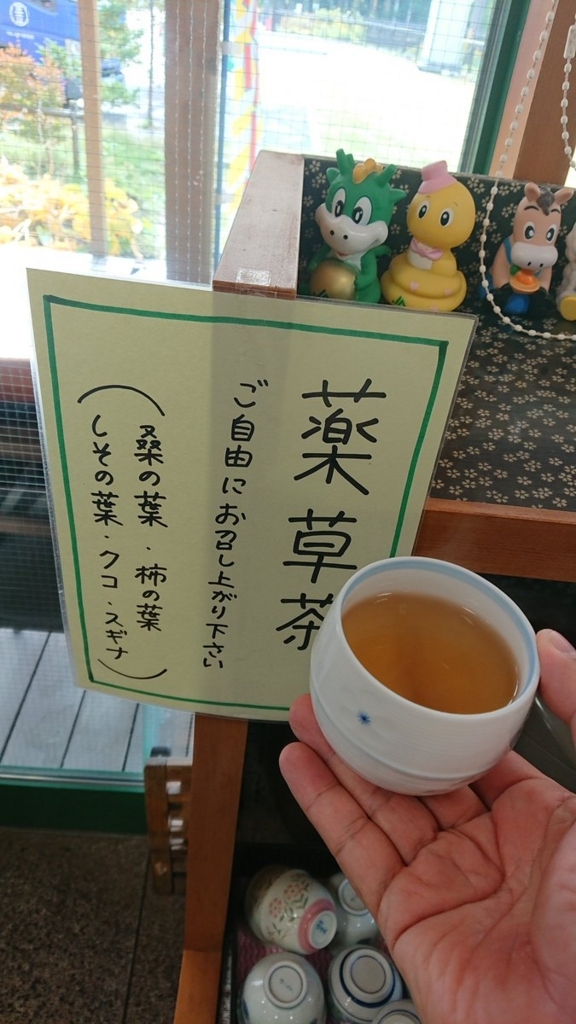 薬草茶
ご自由にお召し上がり下さい
(桑の葉・柿の葉
しその葉・クコ・スギナ)